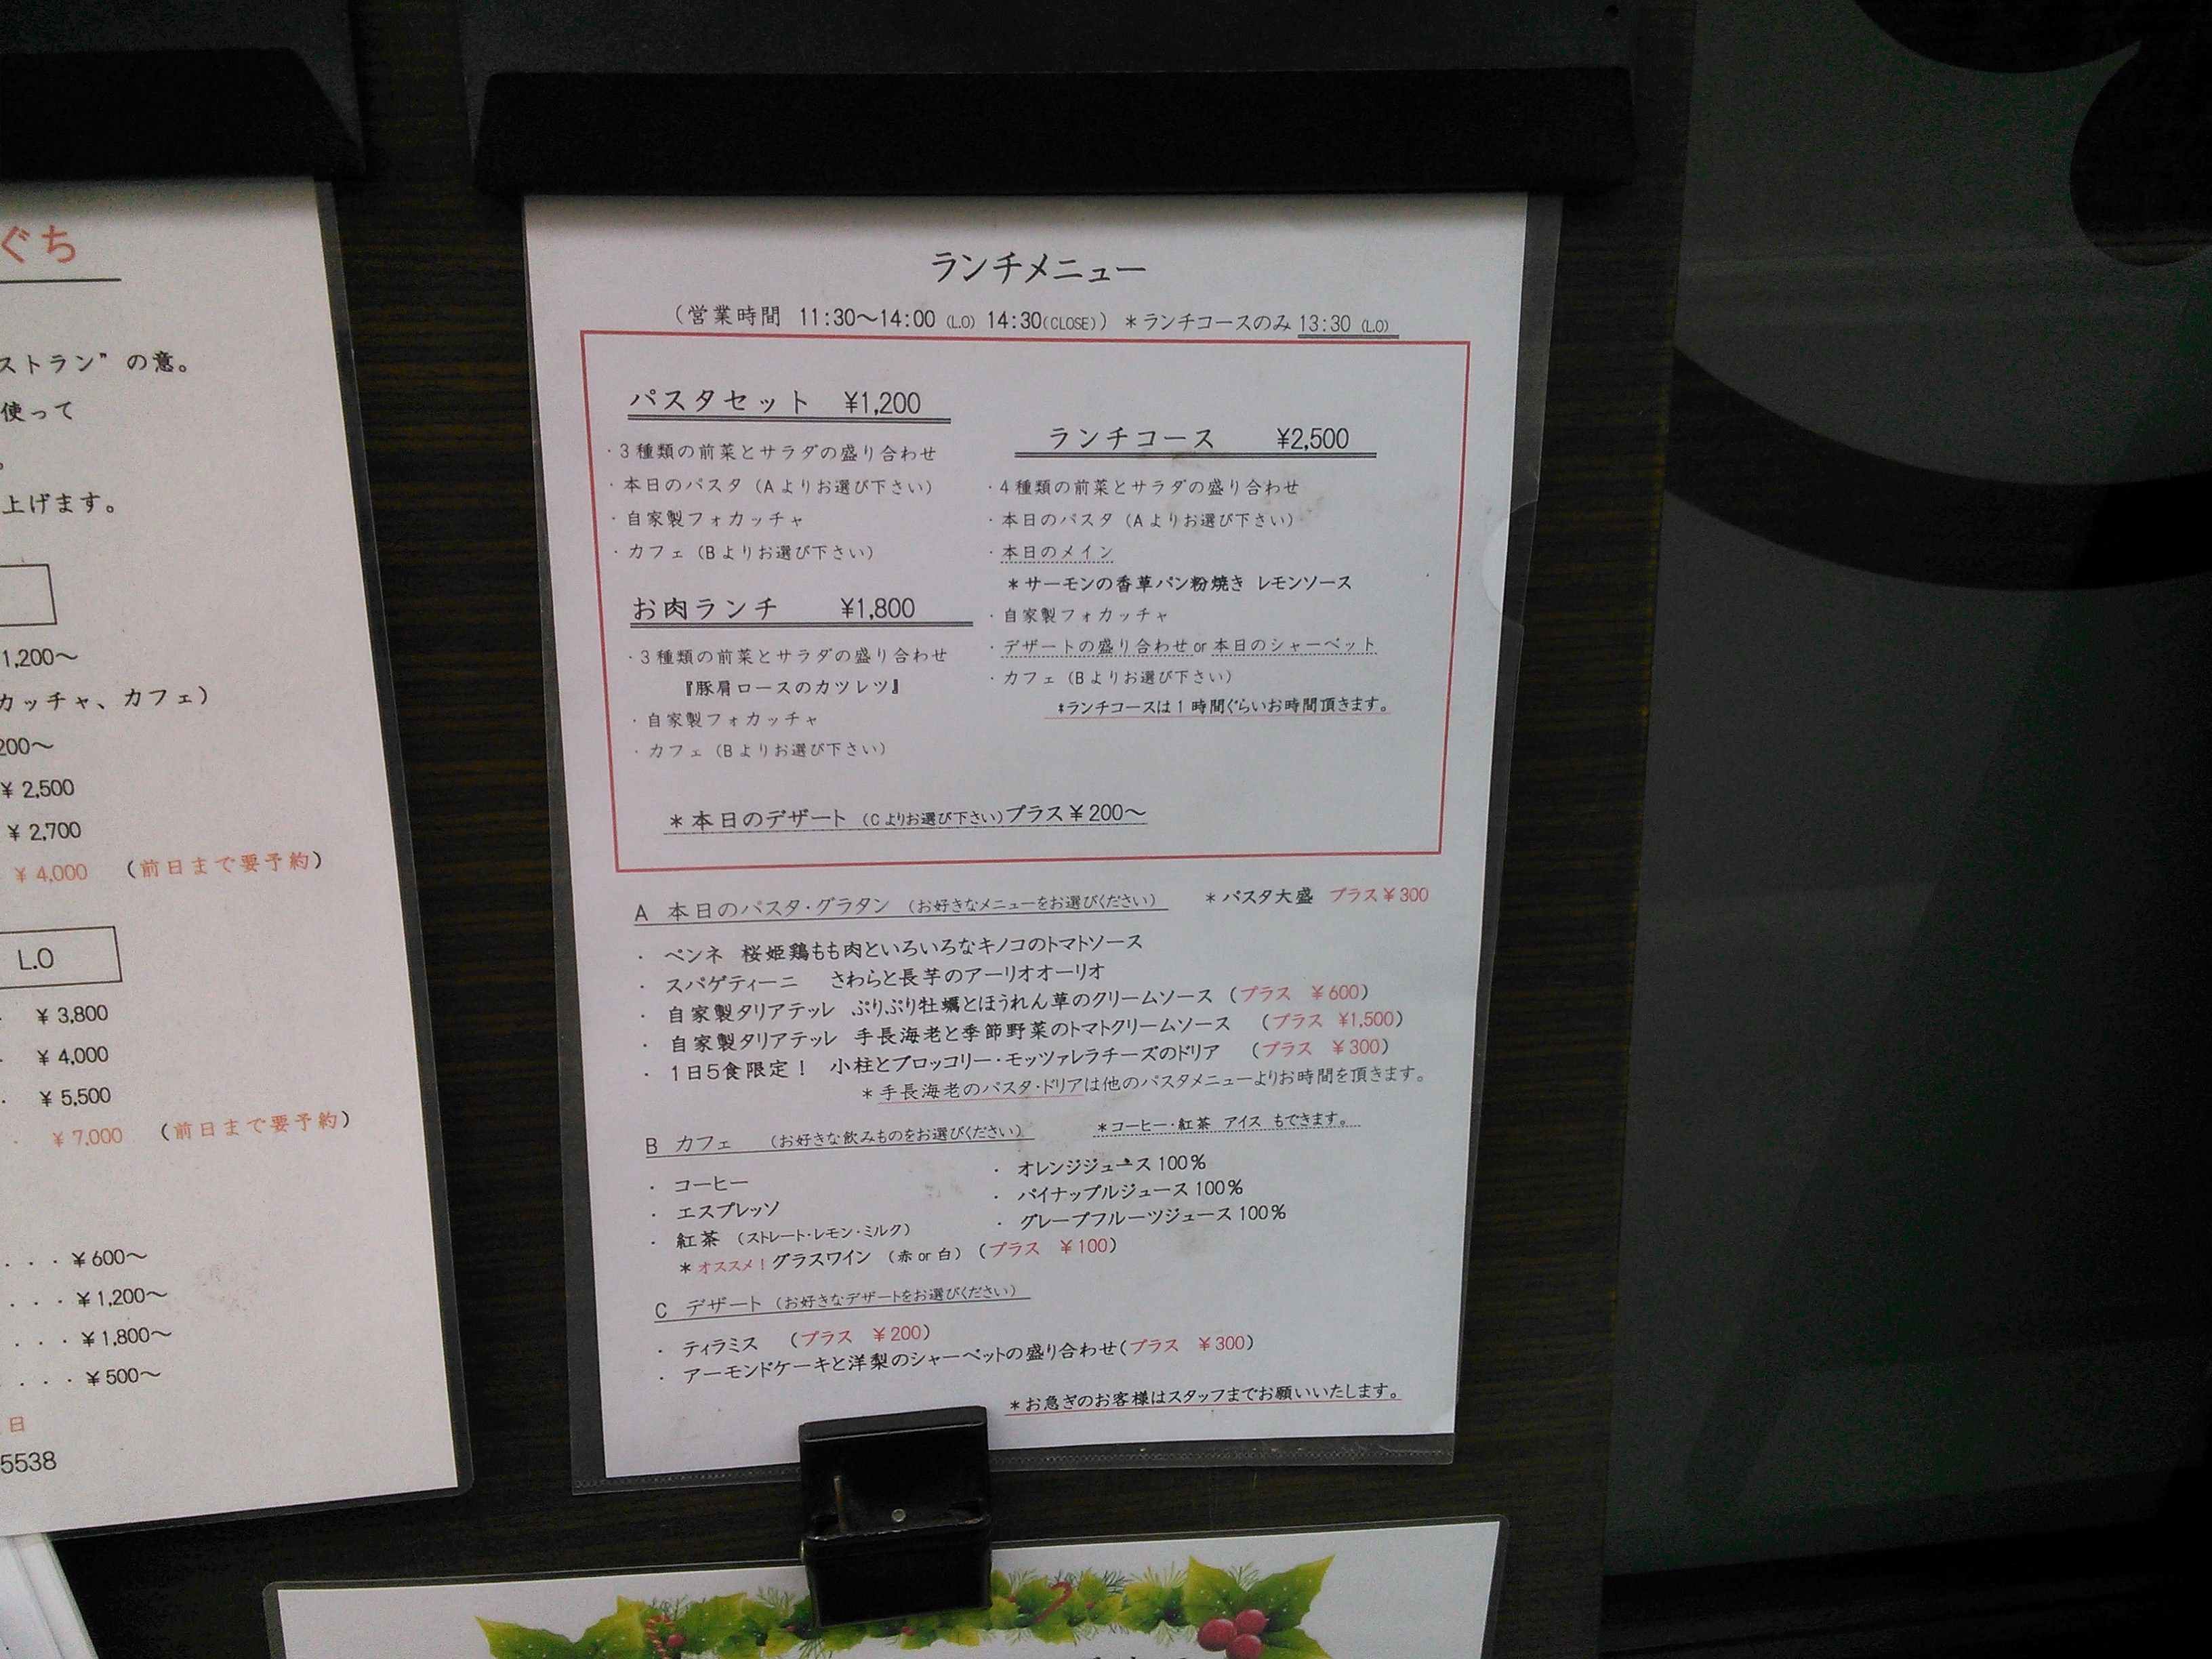 ぐち
ストラン”の意。
使って
。
上げます。
1,200～
カッチャ、カフェ）
200～
¥ 2,500
¥ 2,700
¥ 4,000 （前日まで要予約）
L.O
¥ 3,800
¥ 4,000
¥ 5,500
¥ 7,000 （前日まで要予約）
¥ 600～
¥ 1,200～
¥ 1,800～
¥ 500～
日
5538
ランチメニュー
（営業時間 11:30～14:00 (L.O) 14:30(CLOSE)）＊ランチコースのみ 13:30 (L.O)
パスタセット ¥1,200
・3種類の前菜とサラダの盛り合わせ
・本日のパスタ（Aよりお選び下さい）
・自家製フォカッチャ
・カフェ（Bよりお選び下さい）
お肉ランチ ¥1,800
・3種類の前菜とサラダの盛り合わせ
『豚肩ロースのカツレツ』
・自家製フォカッチャ
・カフェ（Bよりお選び下さい）
ランチコース ¥2,500
・4種類の前菜とサラダの盛り合わせ
・本日のパスタ（Aよりお選び下さい）
・本日のメイン
＊サーモンの香草パン粉焼き レモンソース
・自家製フォカッチャ
・デザートの盛り合わせor本日のシャーベット
・カフェ（Bよりお選び下さい）
*ランチコースは1時間ぐらいお時間頂きます。
＊本日のデザート（Cよりお選び下さい）プラス¥200～
A 本日のパスタ・グラタン（お好きなメニューをお選びください） ＊パスタ大盛 プラス¥300
・ペンネ 桜姫鶏もも肉といろいろなキノコのトマトソース
・スパゲティーニ さわらと長芋のアーリオオーリオ
・自家製タリアテッレ ぷりぷり牡蠣とほうれん草のクリームソース（プラス ¥600）
・自家製タリアテッレ 手長海老と季節野菜のトマトクリームソース （プラス ¥1,500）
・1日5食限定！ 小柱とブロッコリー・モッツァレラチーズのドリア （プラス ¥300）
＊手長海老のパスタ・ドリアは他のパスタメニューよりお時間を頂きます。
B カフェ （お好きな飲みものをお選びください） ＊コーヒー・紅茶 アイス もできます。
・コーヒー
・エスプレッソ
・紅茶（ストレート・レモン・ミルク）
・オレンジジュース100％
・パイナップルジュース100％
・グレープフルーツジュース100％
＊オススメ！グラスワイン（赤or白）（プラス ¥100）
C デザート（お好きなデザートをお選びください）
・ティラミス （プラス ¥200）
・アーモンドケーキと洋梨のシャーベットの盛り合わせ（プラス ¥300）
＊お急ぎのお客様はスタッフまでお願いいたします。